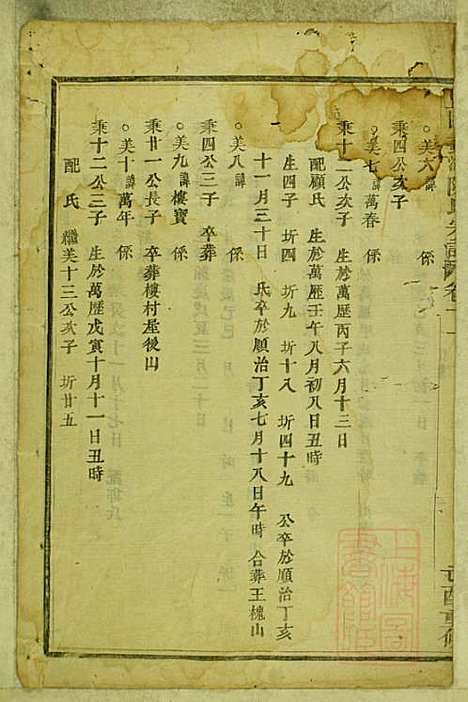 ○美六諱　係
秉四公次子
○美七諱萬春　係
秉十二公次子　生於萬歷丙子六月十三日
配顧氏　生於萬歷壬午八月初八日丑時
生四子　圻四　圻九　圻十八　圻四十九　公卒於順治丁亥
十一月三十日　氏卒於順治丁亥七月十八日午時　合葬王槐山
○美八諱　係
秉四公三子　卒葬
○美九諱樓寶　係
秉廿一公長子　卒葬樓村屋後山
○美十諱萬年　係
秉十二公三子　生於萬歷戊寅十月十一日丑時
配　氏　繼美十三公次子　圻廿五